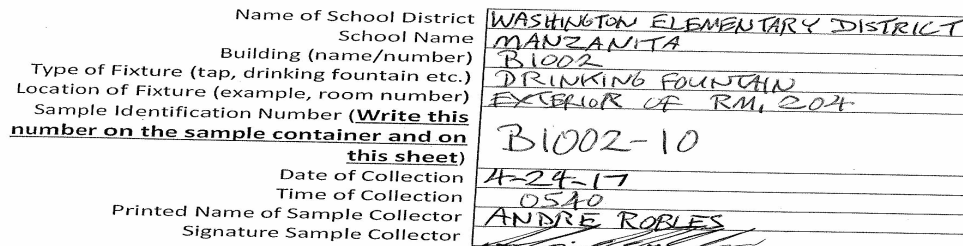 Name of School District WASHINGTON ELEMENTARY DISTRICT
School Name MANZANITA
Building (name/number) B1002
Type of Fixture (tap, drinking fountain etc.) DRINKING FOUNTAIN
Location of Fixture (example, room number) EXTERIOR OF RM. 204
Sample Identification Number (Write this
number on the sample container and on B1002-10
this sheet)
Date of Collection 4-24-17
Time of Collection 0540
Printed Name of Sample Collector ANDRE ROBLES
Signature Sample Collector